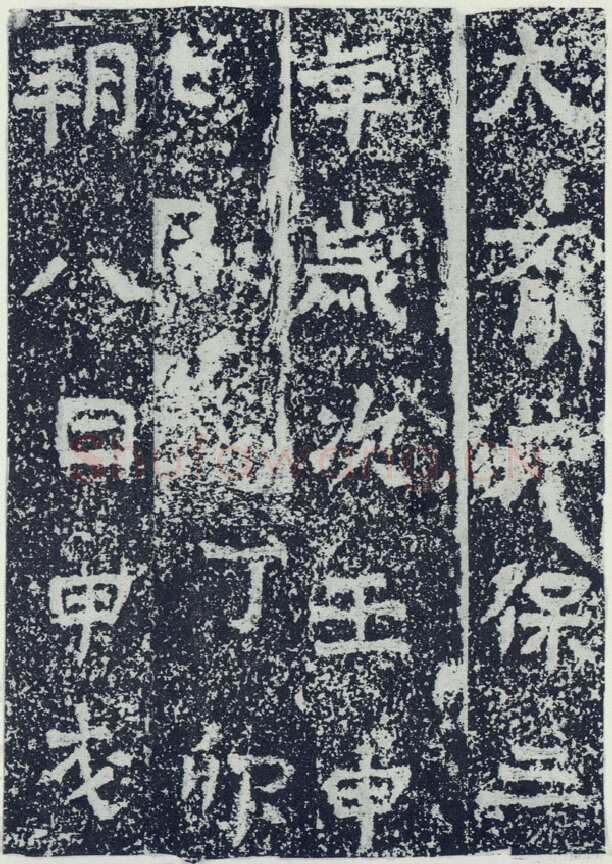 大齊天保三
年歲次壬申
七月丁卯
朔八日甲戌
Shufawang.CN